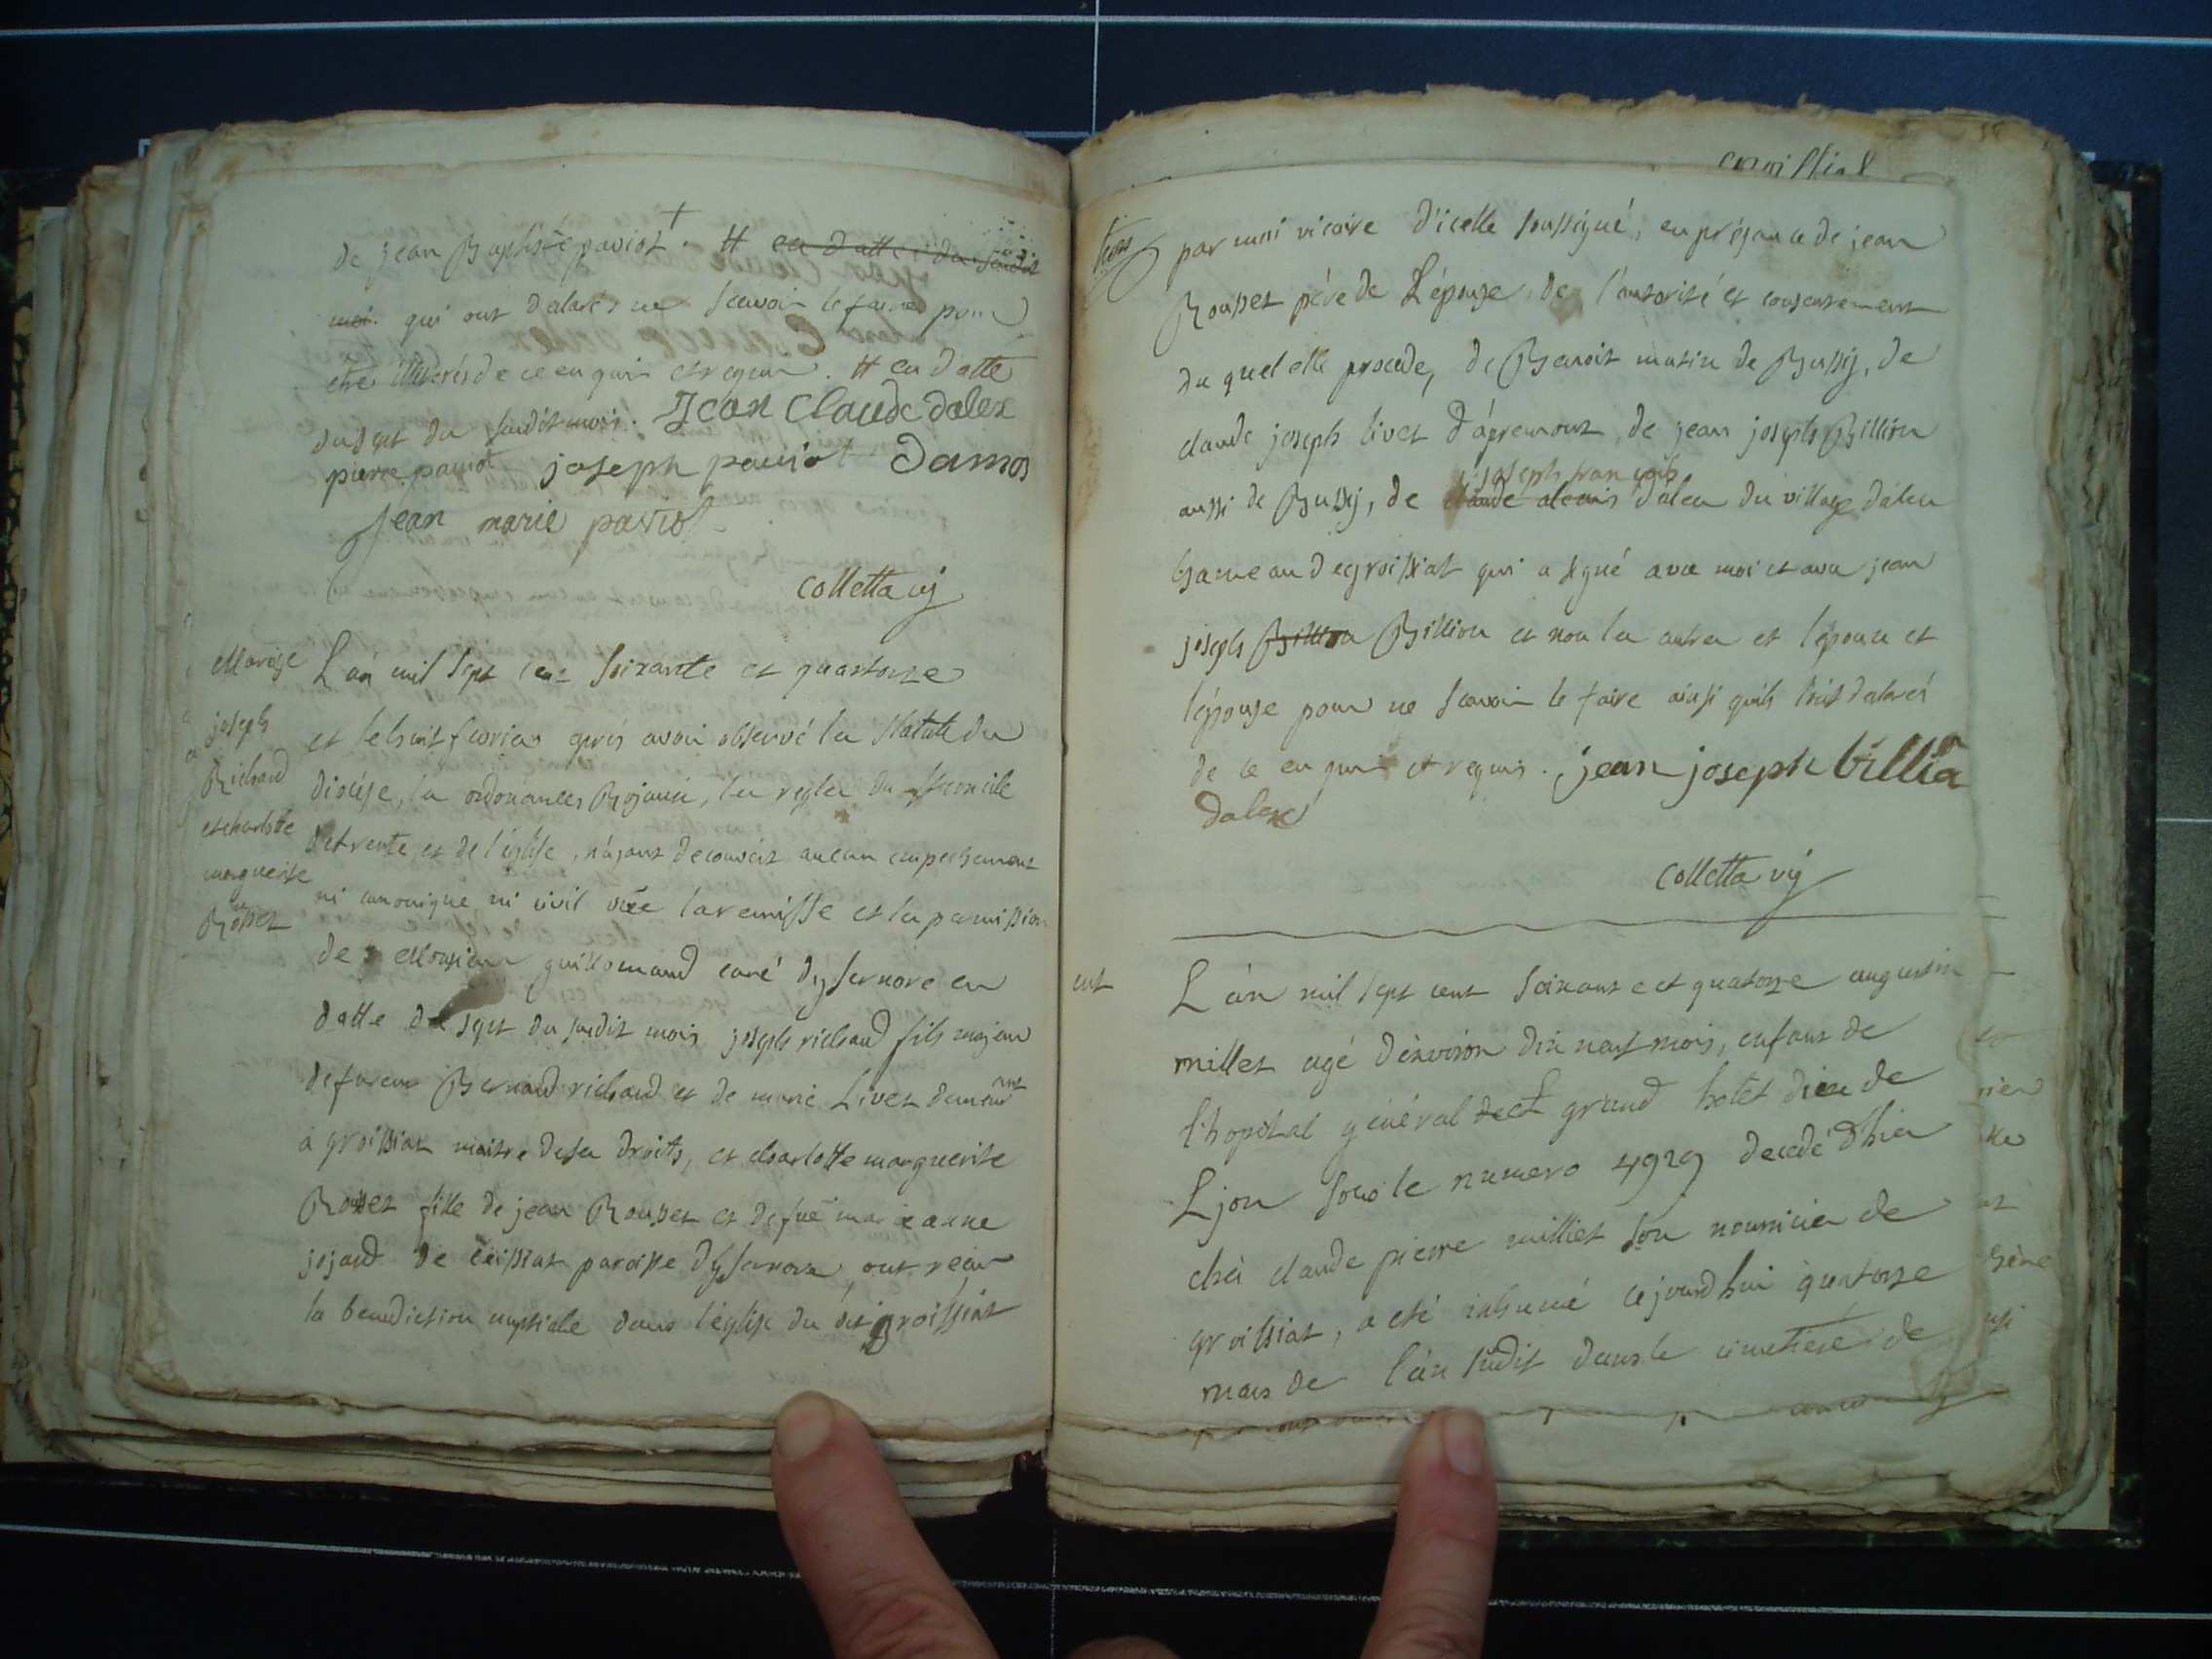 de jean Baptiste paviot. # en datte du susdit
moi qui ont déclarés ne scavoir le faire pour
être illiterés de ce enquis et requis. # en datte
du sept du susdit mois. Jean Claude dalex
pierre paviot joseph paviot Damos
Jean marie paviot
Colletta vij
Mariage
joseph
Richaud
et charlotte
marguerite
Rousset
L'an mil sept cent soixante et quatorze
et le huit fevrier après avoir observé les statuts du
diocése, les ordonances Royaux, les regles du st concile
de trente et de l'église, n'ayant decouvert aucun empechement
ni canonique ni civil vüe la remisse et la permission
de Monsieur guillomaud curé d'ysernore en
datte du sept du susdit mois joseph richaud fils majeur
de feu Bernard richaud et de marie Livet demeurant
à groissiat maitre de ses droits, et charlotte marguerite
Rousset fille de jean Rousset et de fuë marianne
jojard de ceissiat paroisse d'ysernore, ont reçu
la benediction nuptiale dans l'église du dit groissiat
par moi vicaire d'icelle soussigné, en présance de jean
Rousset pére de L'épouse de l'autorité et consentement
du quel elle procede, de Benoit matin de Bussij, de
claude joseph livet d'apremont, de jean joseph Billion
joseph françois
aussi de Bussij, de claude alexis dalex du village d'alex
hameau de groissiat qui a signé avec moi et avec jean
joseph Billion Billion et non les autres et l'époux et
l'épouse pour ne scavoir le faire ainsi qu'ils l'ont déclarés
de ce enquis et requis. jean joseph billia
dalex
Colletta vij
L'an mil sept cent soixante et quatorze augustin
millet agé d'environ dix neuf mois, enfant de
l'hopital général et grand hotel dieu de
Lyon sous le numero 4929 decedé d'hier
chés claude pierre milliet son nourricier de
groissiat, a eté inhumé cejourd'hui quatorze
mars de l'an susdit dans le cimetiere de